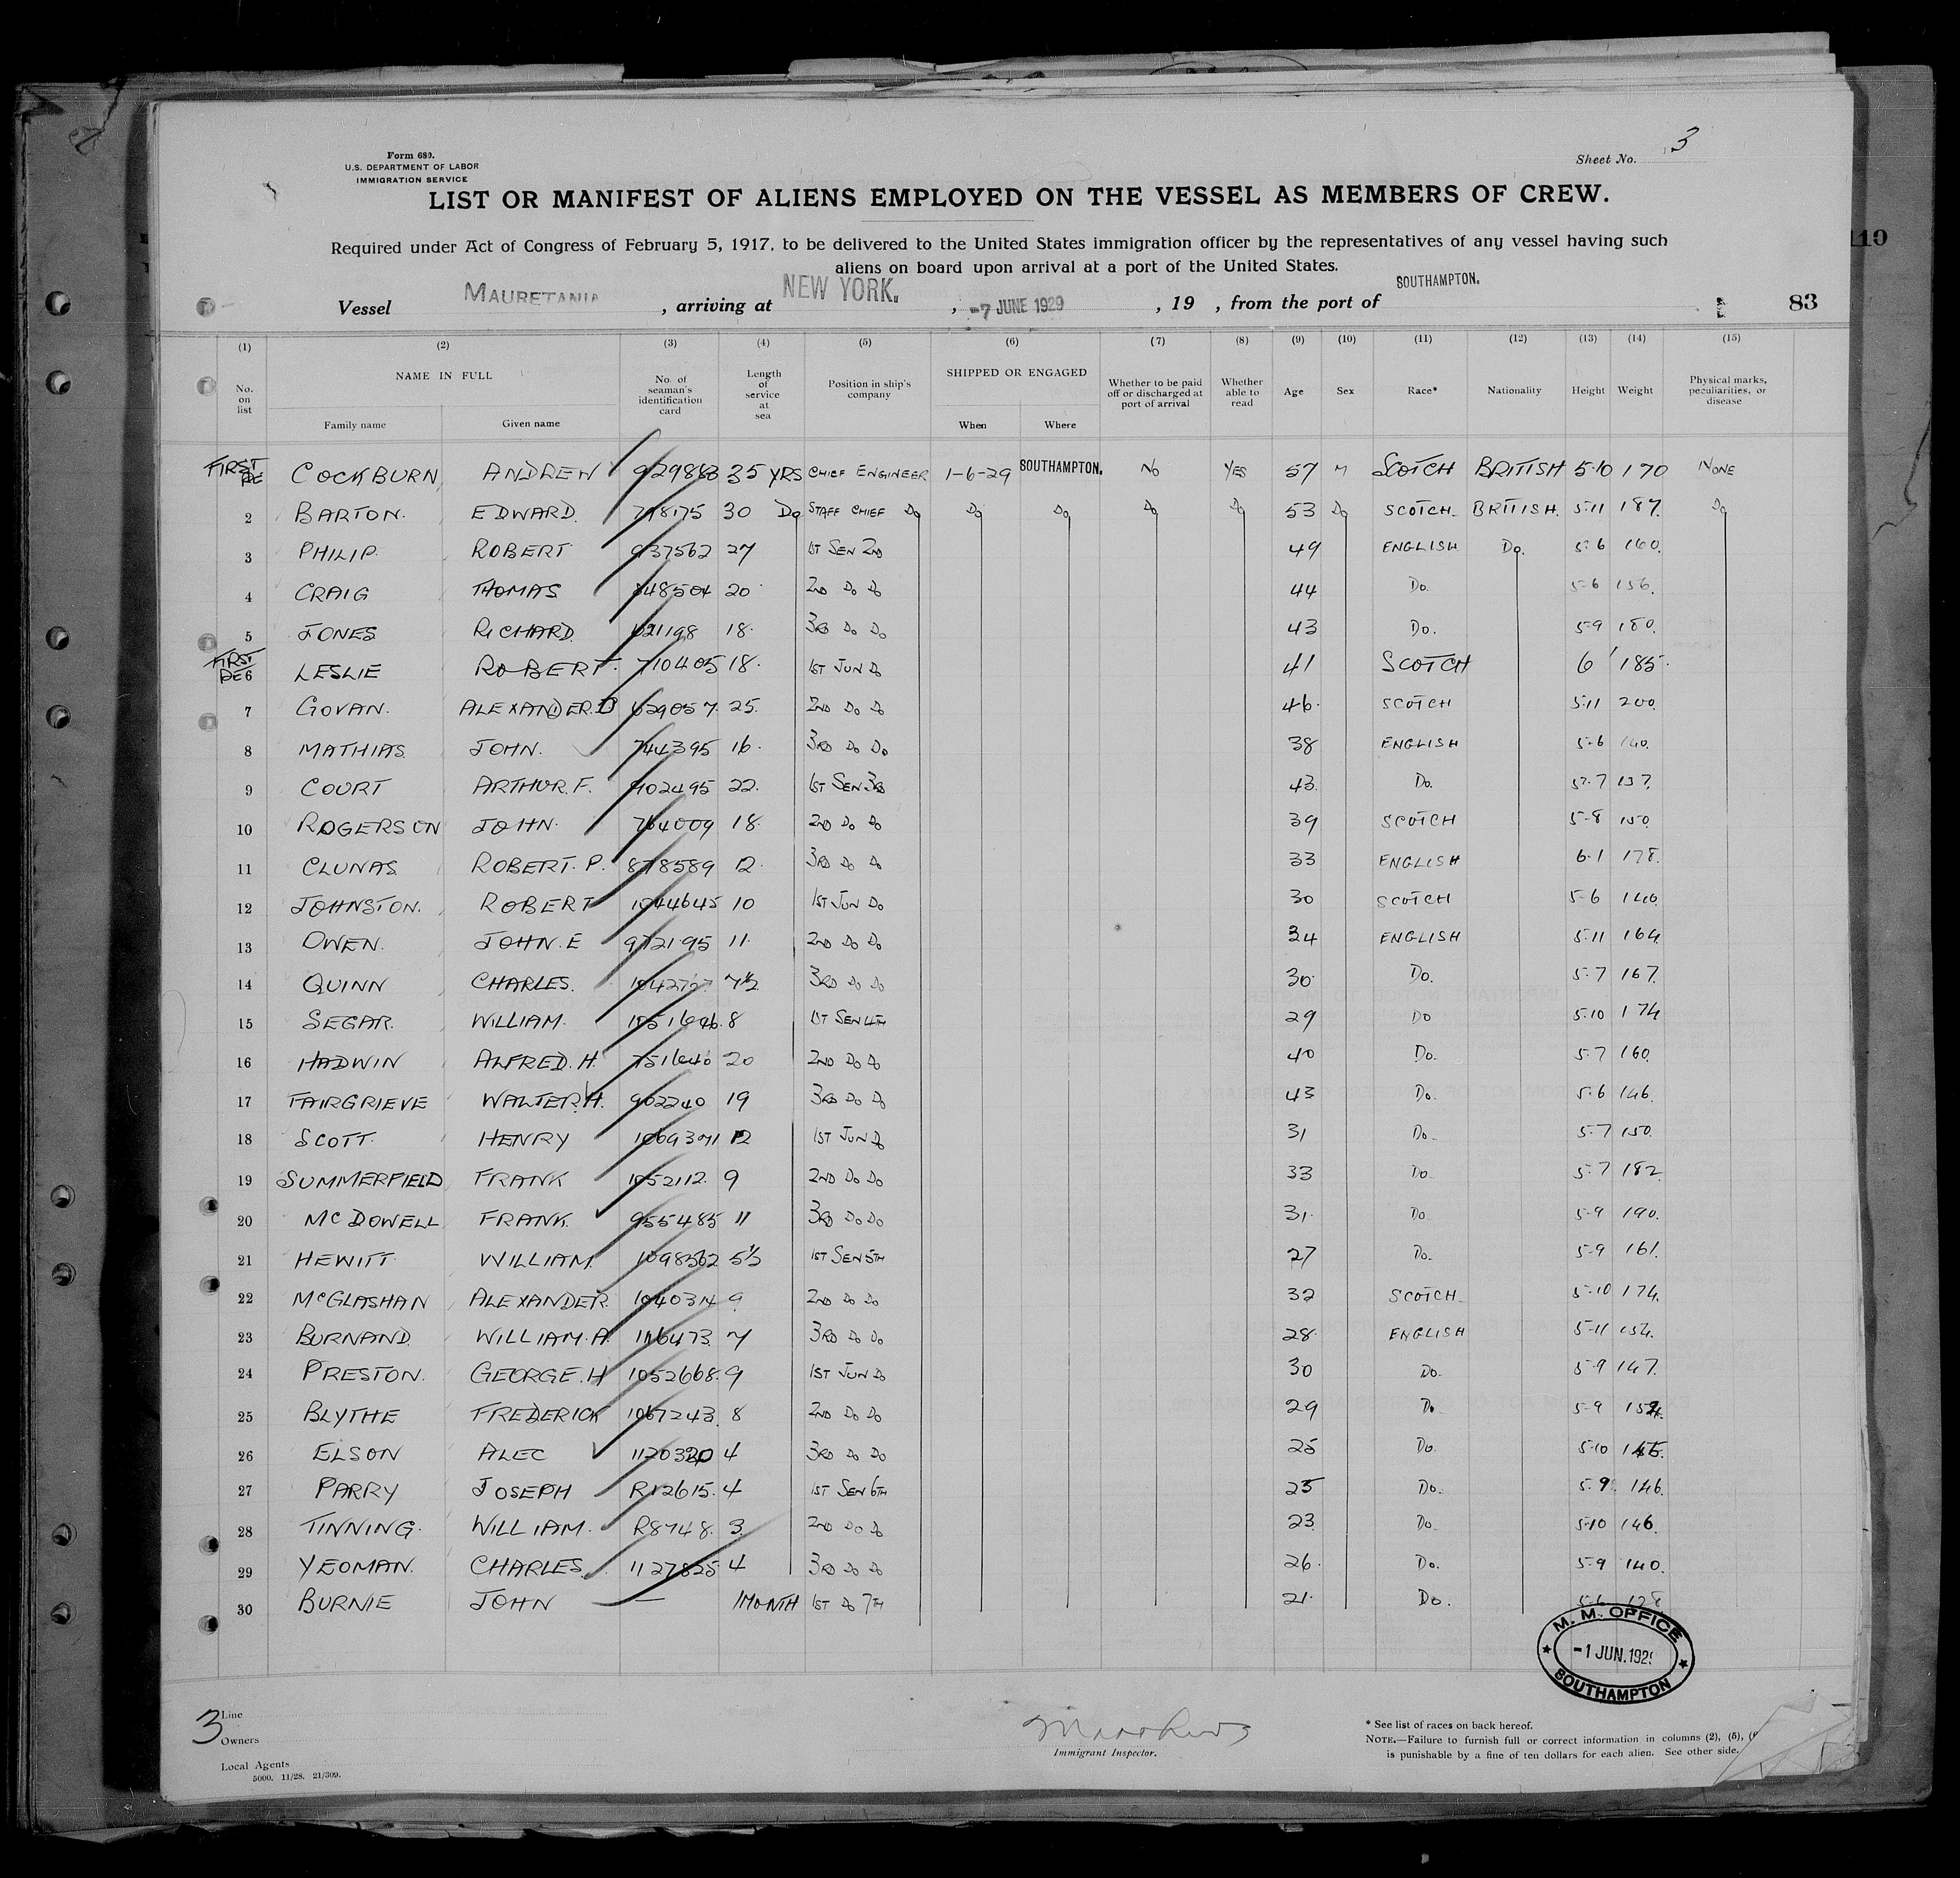 Form 689.
U.S. DEPARTMENT OF LABOR
IMMIGRATION SERVICE
Sheet No. 3
LIST OR MANIFEST OF ALIENS EMPLOYED ON THE VESSEL AS MEMBERS OF CREW.
Required under Act of Congress of February 5, 1917, to be delivered to the United States immigration officer by the representatives of any vessel having such
aliens on board upon arrival at a port of the United States.
110
Vessel MAURETANIA , arriving at NEW YORK. , -7 JUNE 1929 , 19 , from the port of SOUTHAMPTON. 83
(1) (2) (3) (4) (5) (6) (7) (8) (9) (10) (11) (12) (13) (14) (15)
No. on list NAME IN FULL Family name Given name No. of seaman's identification card Length of service at sea Position in ship's company SHIPPED OR ENGAGED When Where Whether to be paid off or discharged at port of arrival Whether able to read Age Sex Race* Nationality Height Weight Physical marks, peculiarities, or disease
FIRST COCKBURN, ANDREW 35 YRS CHIEF ENGINEER 1-6-29 SOUTHAMPTON. NO YES 57 M SCOTCH BRITISH 5-10 170 NONE
2 BARTON. EDWARD. 718175 30 Do STAFF CHIEF Do Do Do Do Do 53 Do SCOTCH BRITISH. 5-11 187. Do
3 PHILIP. ROBERT 937562 27 1ST SEN 2ND 49 ENGLISH Do. 5-6 160.
4 CRAIG THOMAS 848504 20 2ND Do Do 44 Do. 5-6 156.
5 JONES RICHARD. 621198 18. 3RD Do Do 43 Do. 5-9 180.
FIRST
6 LESLIE ROBERT. 710405 18. 1ST JUN Do 41 SCOTCH 6' 185.
7 GOVAN. ALEXANDER.D 629057. 25. 2ND Do Do 46. SCOTCH 5-11 200.
8 MATHIAS. JOHN. 744395 16. 3RD Do Do 38 ENGLISH 5-6 140.
9 COURT ARTHUR.F. 902495 22. 1ST SEN 3RD 43. Do. 5-7 137.
10 ROGERSON JOHN. 764009 18. 2ND Do Do 39 SCOTCH 5-8 150.
11 CLUNAS ROBERT. P. 878589 12. 3RD Do Do 33 ENGLISH 6-1 178.
12 JOHNSTON. ROBERT 1044645 10 1ST JUN Do 30 SCOTCH 5-6 140.
13 OWEN. JOHN. E 972195 11. 2ND Do Do 34 ENGLISH 5-11 164.
14 QUINN CHARLES. 7½ 3RD Do Do 30. Do. 5-7 167.
15 SEGAR. WILLIAM. 1051646. 8 1ST SEN 4TH 29 Do 5-10 174
16 HADWIN ALFRED. H. 751640 20 2ND Do Do 40 Do. 5-7 160.
17 FAIRGRIEVE WALTER.H. 902240 19 3RD Do Do 43 Do. 5-6 146.
18 SCOTT. HENRY 1069371 12 1ST JUN Do 31 Do. 5-7 150.
19 SUMMERFIELD FRANK 1052112. 9 2ND Do Do 33 Do. 5-7 182.
20 McDOWELL FRANK. 955485 11 3RD Do Do 31. Do. 5-9 190.
21 HEWITT WILLIAM. 1098362 5½ 1ST SEN 5TH 27 Do. 5-9 161.
22 McGLASHAN ALEXANDER. 1040314 9. 2ND Do Do 32 SCOTCH. 5-10 174.
23 BURNAND. WILLIAM.A. 1116473. 7 3RD Do Do 28. ENGLISH 5-11 154.
24 PRESTON. GEORGE.H 1052668. 9 1ST JUN Do 30 Do. 5-9 147.
25 BLYTHE FREDERICK 1067243. 8 2ND Do Do 29 Do 5-9
26 ELSON ALEC 1120320 4 3RD Do Do 25 Do. 5-10 145.
27 PARRY JOSEPH R12615. 4 1ST SEN 6TH 25 Do. 5-9. 146.
28 TINNING. WILLIAM. R8748. 3. 2ND Do Do 23. Do. 5-10 146.
29 YEOMAN. CHARLES. 1127825 4 3RD Do Do 26. Do. 5-9 140.
30 BURNIE JOHN — 1MONTH 1ST Do 7TH 21. Do. 5-6 128
M. M. OFFICE
-1 JUN.1929
SOUTHAMPTON
3 Line
Owners
Local Agents
5000. 11/28. 21/309.
Immigrant Inspector.
* See list of races on back hereof.
NOTE.—Failure to furnish full or correct information in columns (2), (5),
is punishable by a fine of ten dollars for each alien. See other side.